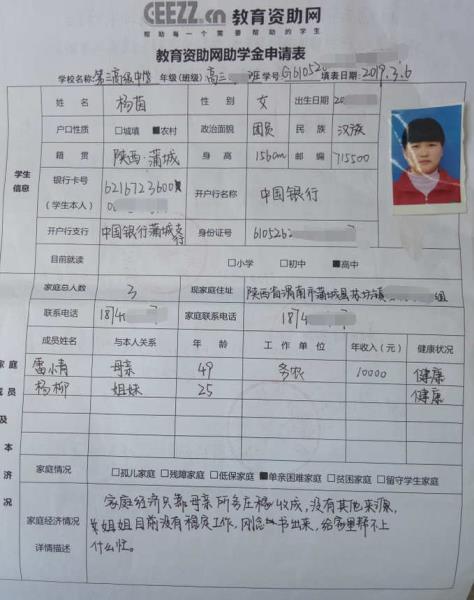 CEEZZ.cn 教育资助网
帮助每一个需要帮助的学生
教育资助网助学金申请表
学校名称: 第三高级中学 年级(班级) 高三 班 学号 G610520 填表日期: 2019.3.6
姓名 杨苗 性别 女 出生日期 20
户口性质 □城填 ■农村 政治面貌 团员 民族 汉族
籍贯 陕西·蒲城 身高 156cm 邮编 715500
学生信息
银行卡号(学生本人) 6216723600 开户行名称 中国银行
开户行支行 中国银行蒲城支行 身份证号 610526
目前就读 □小学 □初中 ■高中
家庭总人数 3 现家庭住址 陕西省渭南市蒲城县 镇 组
联系电话 1874 7 家庭联系电话 1874 7
成员姓名 与本人关系 年龄 工作单位 年收入(元) 健康状况
雷小情 母亲 49 务农 10000 健康
杨柳 姐妹 25 健康
家庭成员及本 济 况
家庭情况 □孤儿家庭 □残障家庭 □低保家庭 ■单亲困难家庭 □贫困家庭 □留守学生家庭
家庭经济情况详情描述
家庭经济只靠母亲所务庄稼收成,没有其他来源,
姐姐目前没有稳定工作,刚念 书出来,给家里帮不上
什么忙。